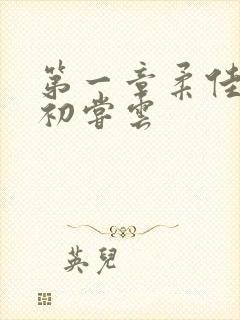 第一章柔佳
初嘗雲
英兒